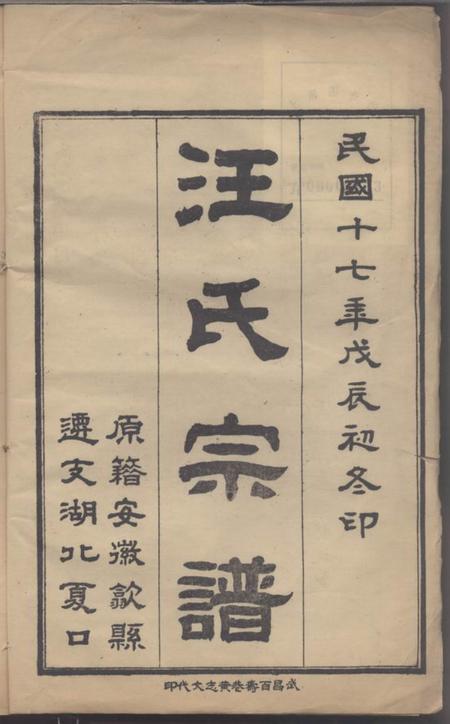 民國十七年戊辰初冬印
汪氏宗譜
原籍安徽歙縣
遷支湖北夏口
武昌百壽巷黃志文代印